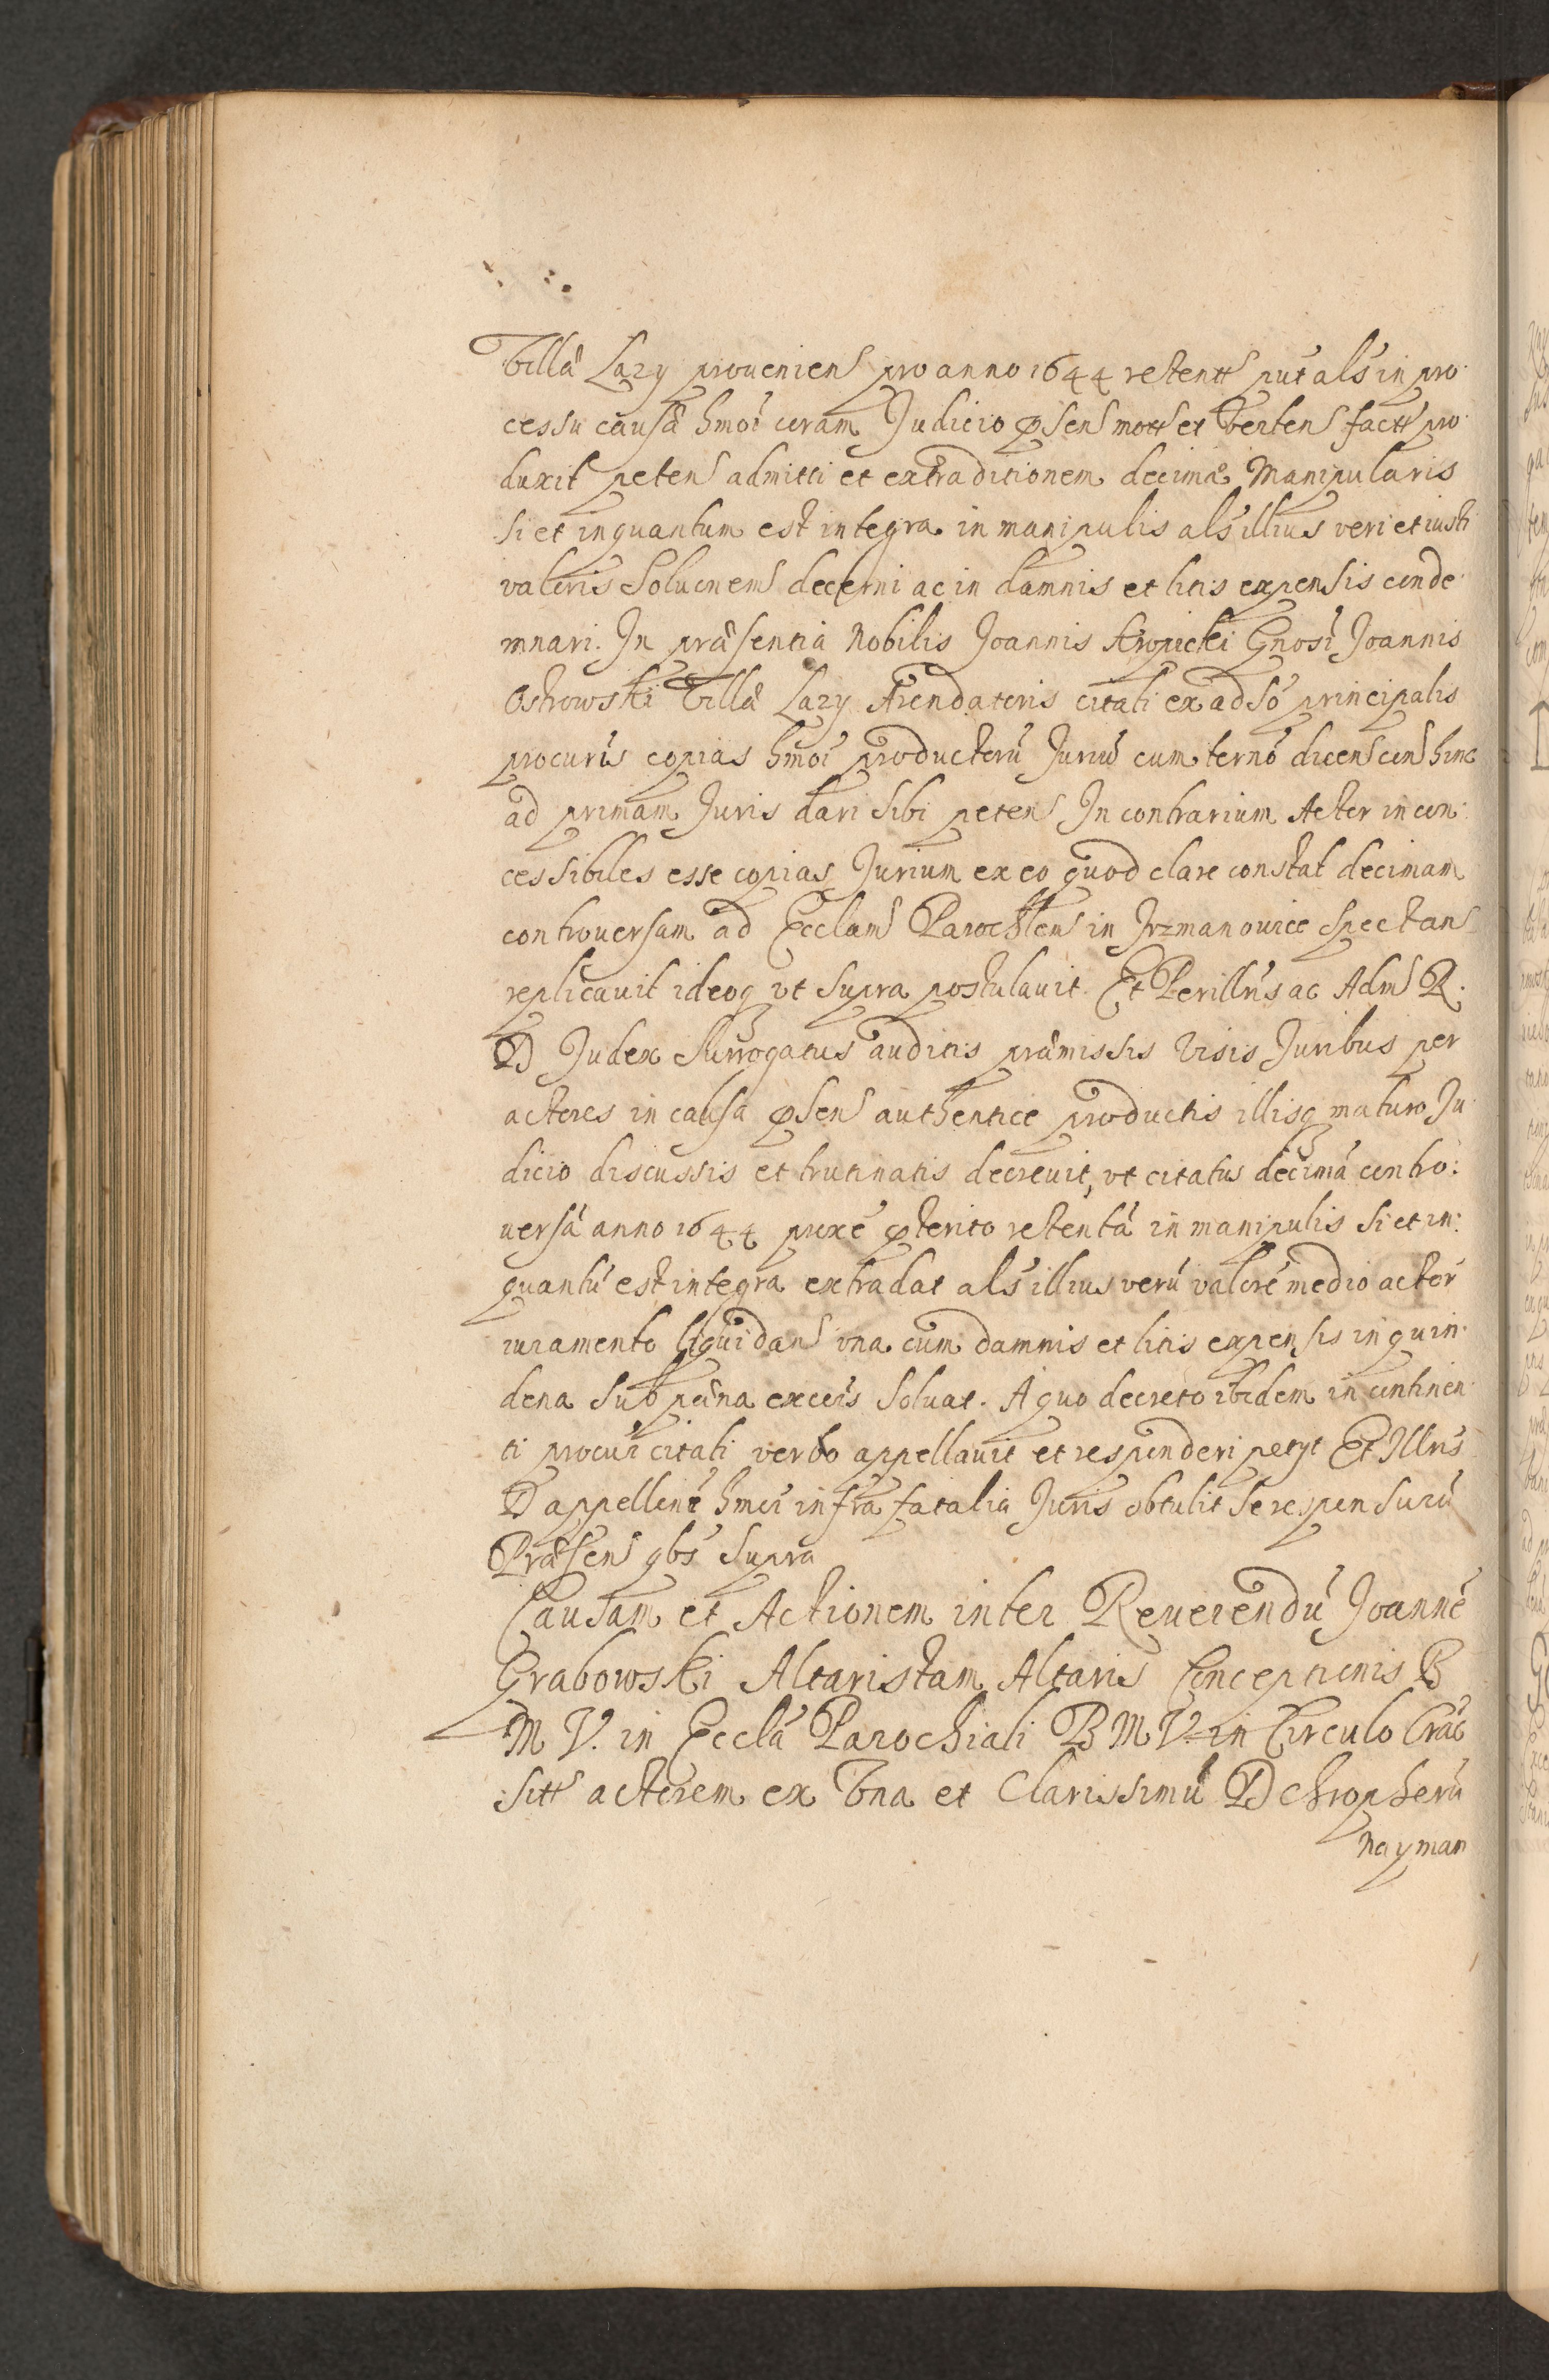 Villa Lazy proueniens pro anno 1644 retentt put als in pro
cessu causa hmoi coram Judicio psens mott et Verten factt pro
duxit petens admitti et extraditionem decimæ Manipularis
si et inquantum est integra in manipulis als illius veri et iusti
valoris Soluonem decerni ac in damnis et litis expensis conde
mnari. In præsentia Nobilis Joannis Gnosi Joannis
Ostrowski Villæ Lazy Arendatoris citati ex adso principalis
procuris copias hmoi productorū Juriū cum termo dicens hinc
ad primam Juris dari sibi petens In contrarium Actor incon
cessibiles esse copias Jurium ex eo quod clare constat decimam
controuersam ad Ecclam Parochlem in Jrzmanouice spectans
replicauit ideoq vt supra postulauit. Et Perillris ac Adm R.
D Judex Surrogatus auditis præmissis visis Juribus per
actores in causa psens authentice productis illisq maturo Ju
dicio discussis et trutinatis decreuit, vt citatus decimā contro:
uersā anno 1644 proxe pterito retentā in manipulis si et in:
quantū est integra extradat als illius verū valorē medio actor
iuramento liquidans vna cum damnis et litis expensis in quin
dena sub pæna excois soluat. A quo decreto ibidem in continen
ti procur citati verbo appellauit et responderi petyt Et Illris
D appellone hmoi infra fatalia Juris obtulit se responsurū
Præsen qbs supra
Causam et Actionem inter Reuerendū Joannē
Grabowski Altaristam Altaris Conceptionis B
M V. in Eccla Parochiali B M V. in Circulo Crac
sitt actorem ex Vna et Clarissimū D Chropherū
Nayman